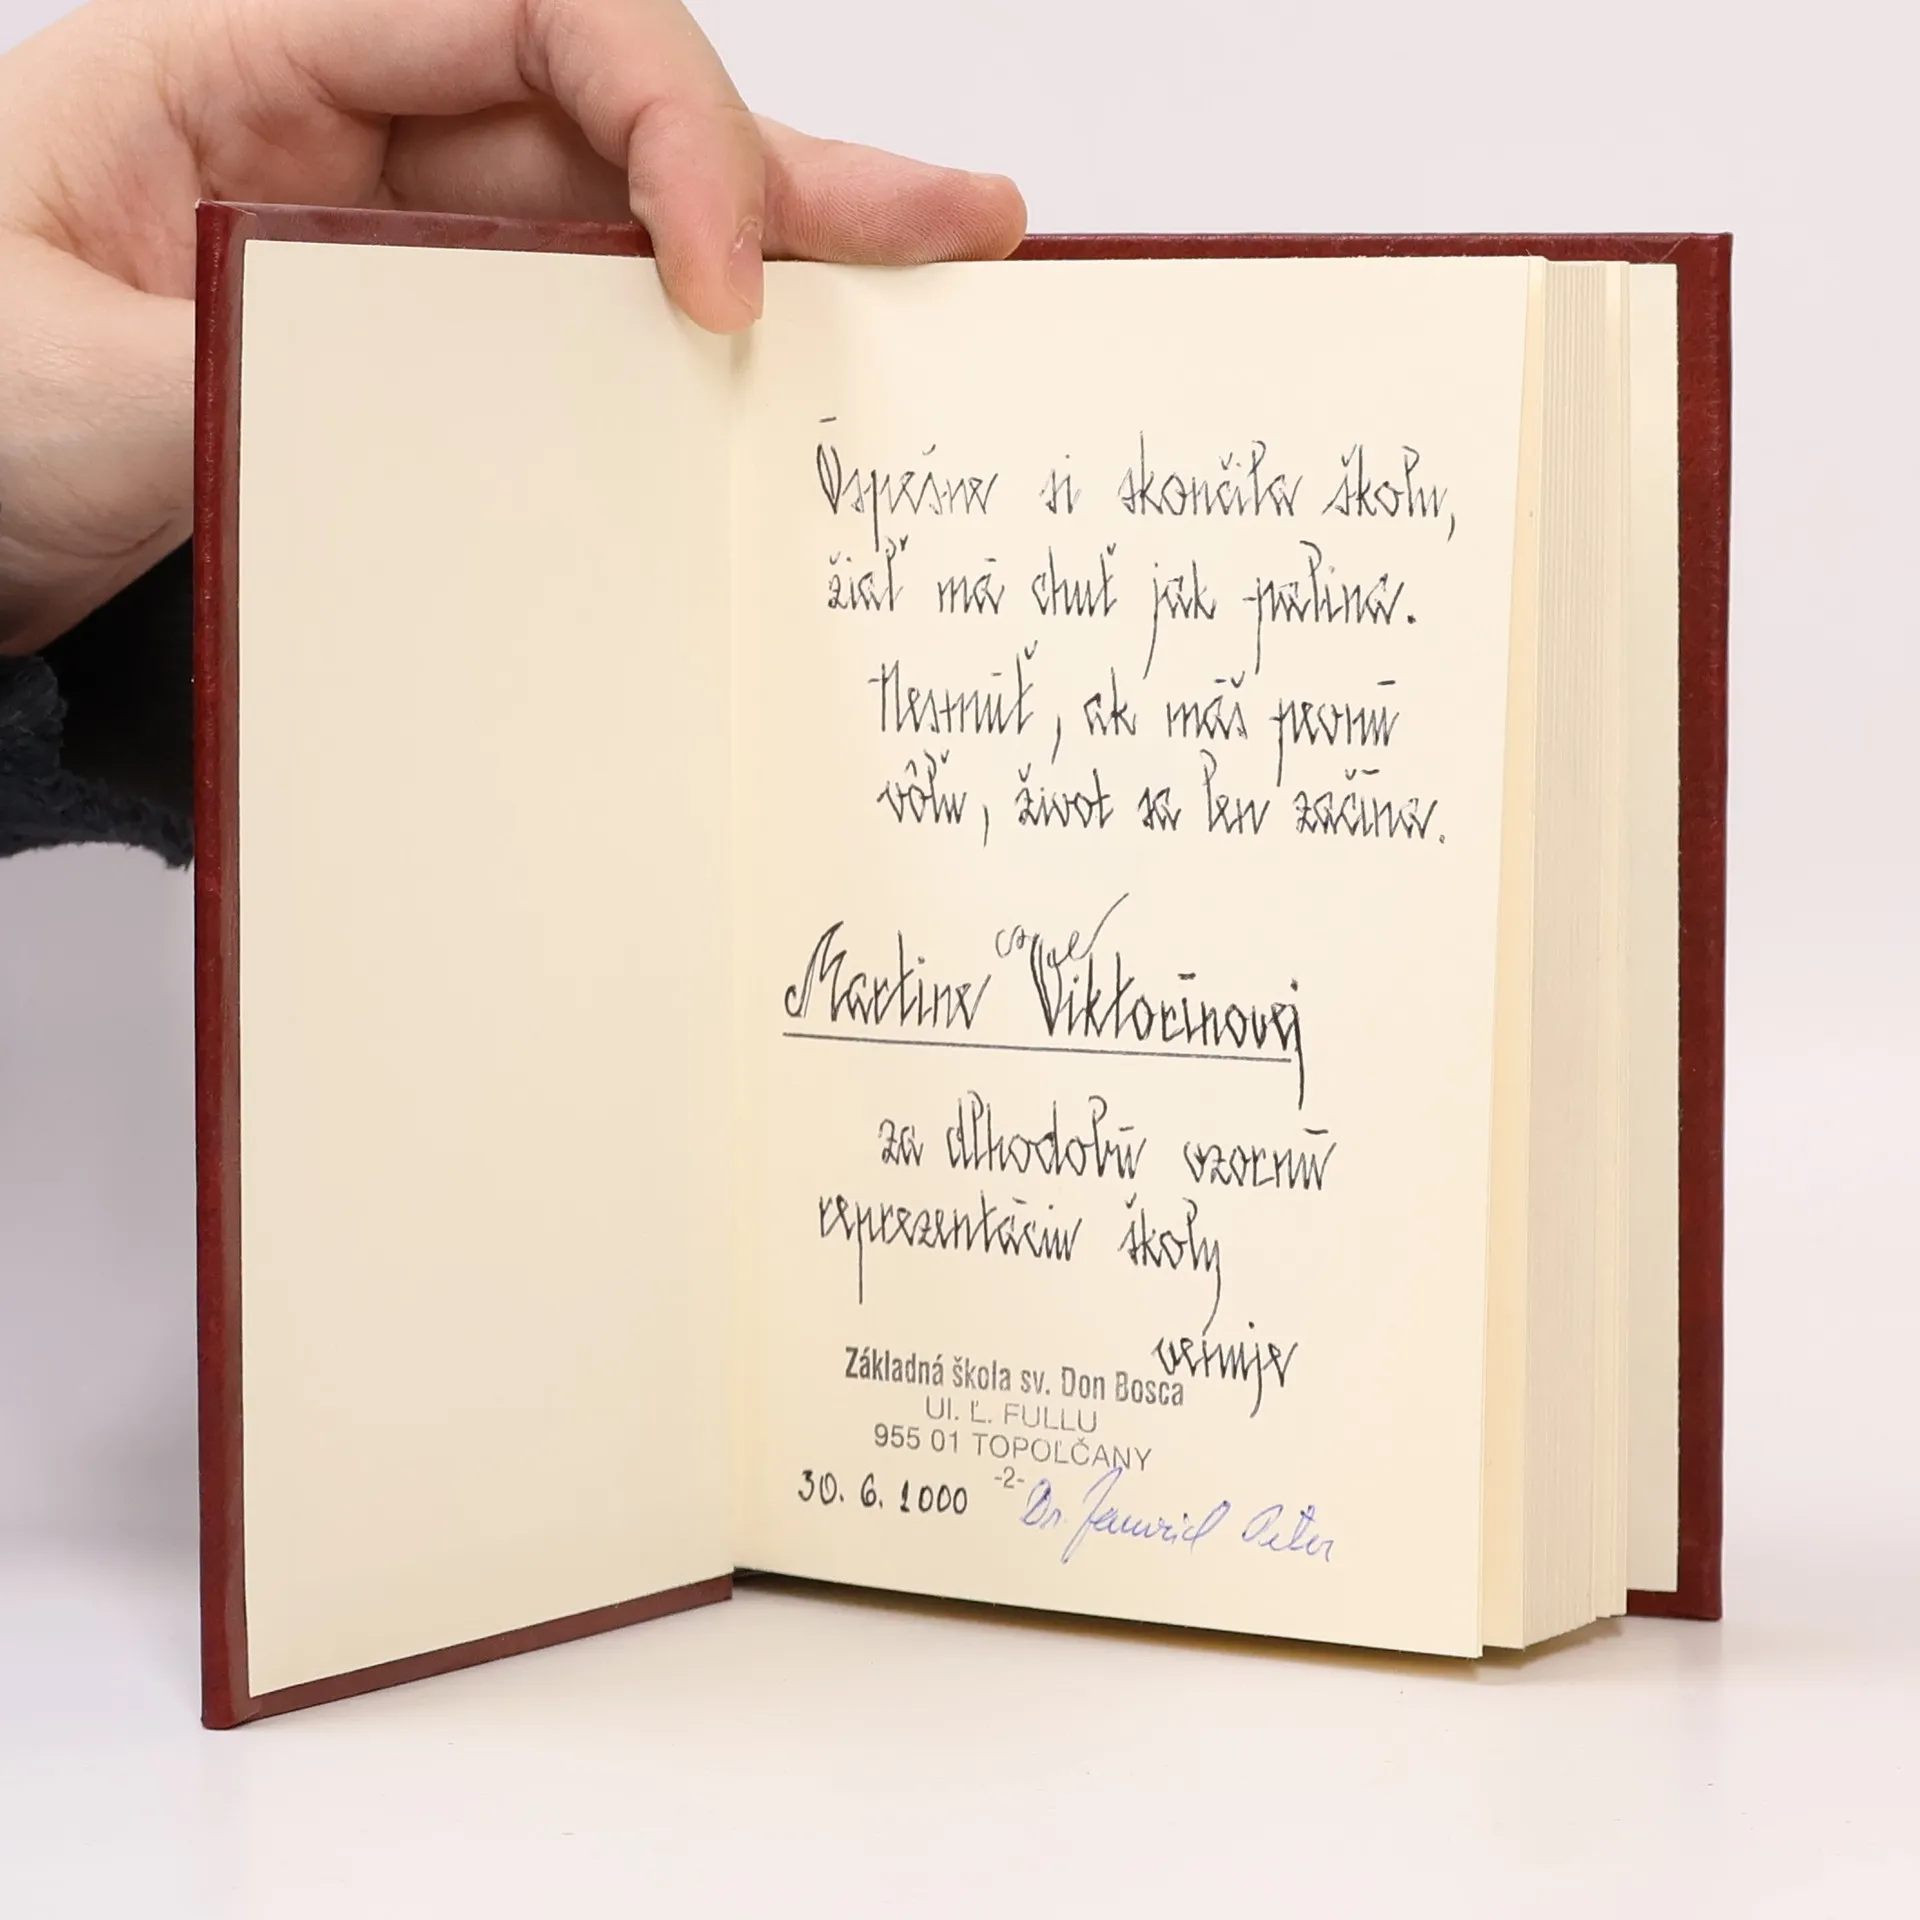 Úspešne si skončila školu,
žiaľ má chuť jak palina.
Nesmúť, ak máš pevnú
vôľu, život sa len začína.
Martine Viktorínovej
za dlhodobú vzornú
reprezentáciu školy
venuje
Základná škola sv. Don Bosca
Ul. Ľ. FULLU
955 01 TOPOĽČANY
-2-
30. 6. 1000
Dr. Peter